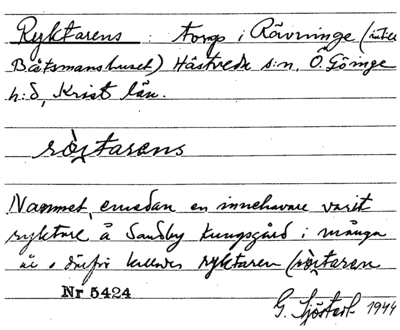 Ryktarens : torp i Rävninge (intill
Båtsmanshuset) Hästveda s:n, Ö. Göinge
h:d, Krist. län.
röjtarens
Namnet, emedan en innehavare varit
ryktare å Sandby Kungsgård i många
år o därför kallades ryktaren (röjtaran
Nr 5424
G. Sjöstedt 1944